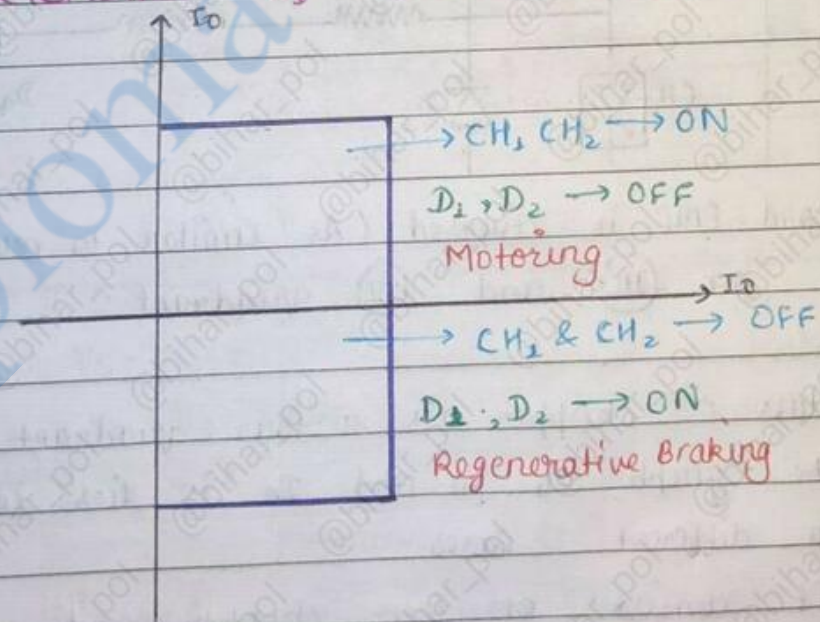 I0
CH1 CH2 → ON
D1, D2 → OFF
Motoring
I0
CH1 & CH2 → OFF
D1, D2 → ON
Regenerative Braking
@bihar_pol